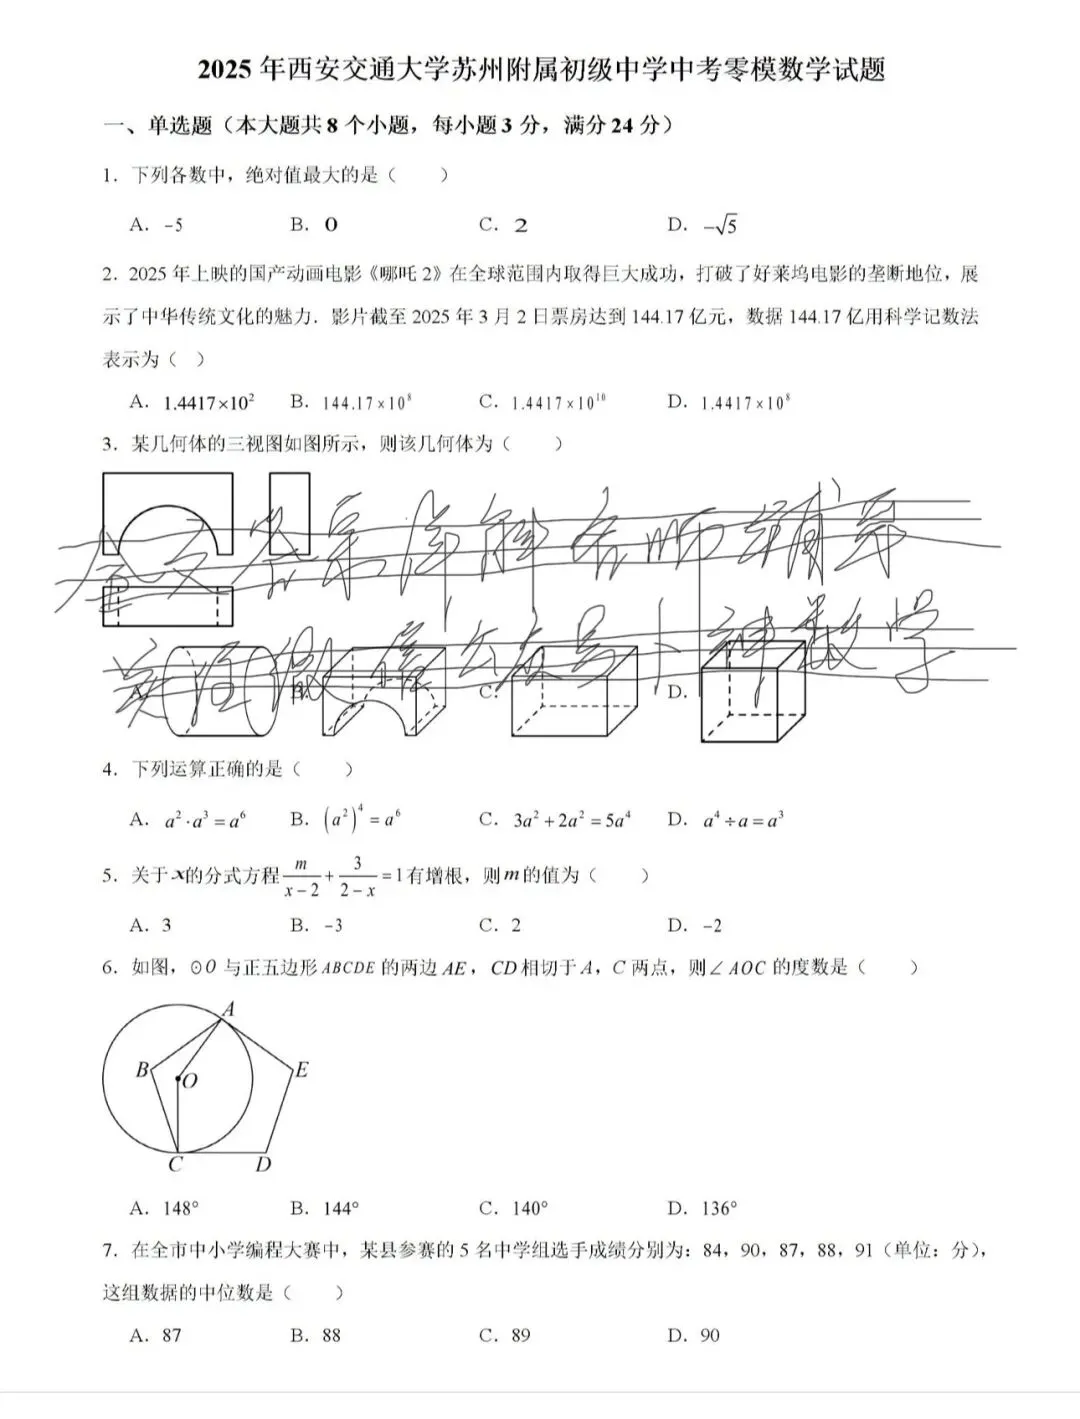 2025年西安交通大学苏州附属初级中学中考零模数学试题
一、单选题（本大题共8个小题，每小题3分，满分24分）
1．下列各数中，绝对值最大的是（　　）
A．-5　B．0　C．2　D．-√5
2．2025年上映的国产动画电影《哪吒2》在全球范围内取得巨大成功，打破了好莱坞电影的垄断地位，展
示了中华传统文化的魅力．影片截至2025年3月2日票房达到144.17亿元，数据144.17亿用科学记数法
表示为（　）
A．1.4417×10²　B．144.17×10⁸　C．1.4417×10¹⁰　D．1.4417×10⁸
3．某几何体的三视图如图所示，则该几何体为（　　）
全文答案详解名师辅导
关注微信公众号卜神数学
B．　C．　D．
4．下列运算正确的是（　　）
A．a²·a³=a⁶　B．(a²)⁴=a⁶　C．3a²+2a²=5a⁴　D．a⁴÷a=a³
5．关于x的分式方程m/(x-2)+3/(2-x)=1有增根，则m的值为（　　）
A．3　B．-3　C．2　D．-2
6．如图，⊙O与正五边形ABCDE的两边AE，CD相切于A，C两点，则∠AOC的度数是（　　）
A
B
O
E
C
D
A．148°　B．144°　C．140°　D．136°
7．在全市中小学编程大赛中，某县参赛的5名中学组选手成绩分别为：84，90，87，88，91（单位：分），
这组数据的中位数是（　　）
A．87　B．88　C．89　D．90